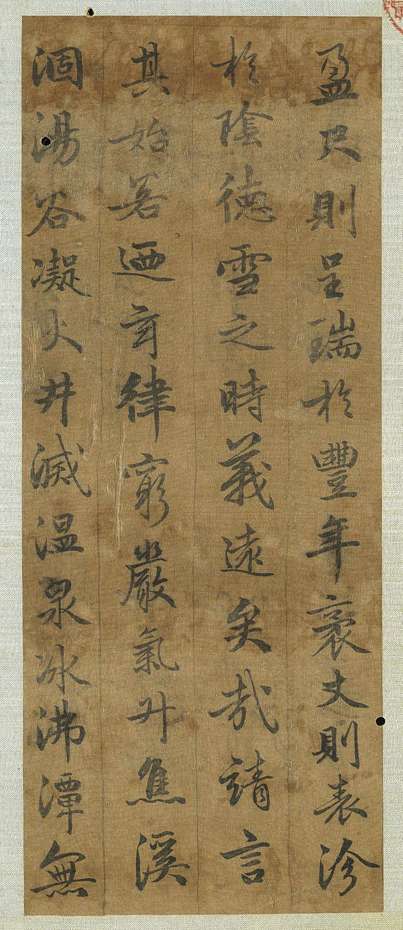 盈尺則呈瑞於豐年袤丈則表沴
於陰德雪之時義遠矣哉請言
其始若迺玄律窮嚴氣升焦溪
涸湯谷凝火井滅温泉冰沸潭無